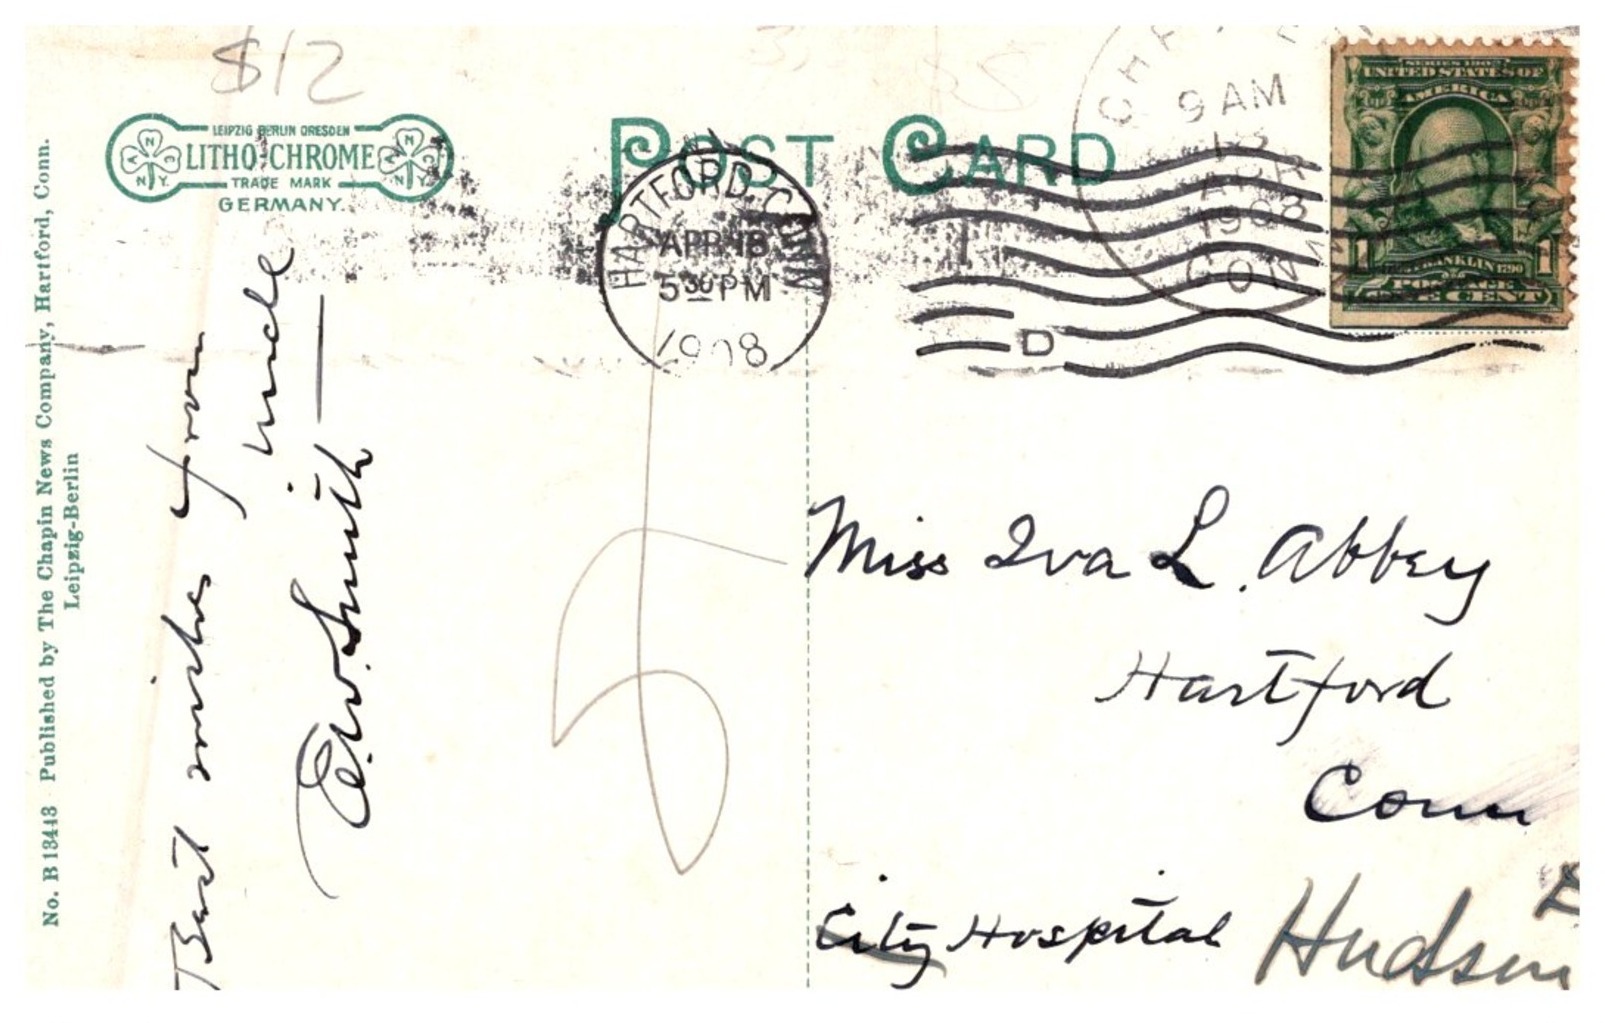 $12
LEIPZIG BERLIN DRESDEN
LITHO-CHROME
TRADE MARK
GERMANY.
POST CARD
No. B 13448 Published by The Chapin News Company, Hartford, Conn.
Leipzig-Berlin
HARTFORD, CONN
APR 18
5 30 PM
1908
D
9 AM
APR
1908
CONN
SERIES 1902
UNITED STATES OF
AMERICA
FRANKLIN 1790
POSTAGE
1 ONE CENT 1
Best wishes from
Uncle
E.W. Smith
Miss Iva L. Abbey
Hartford
Conn
City Hospital
Hudson